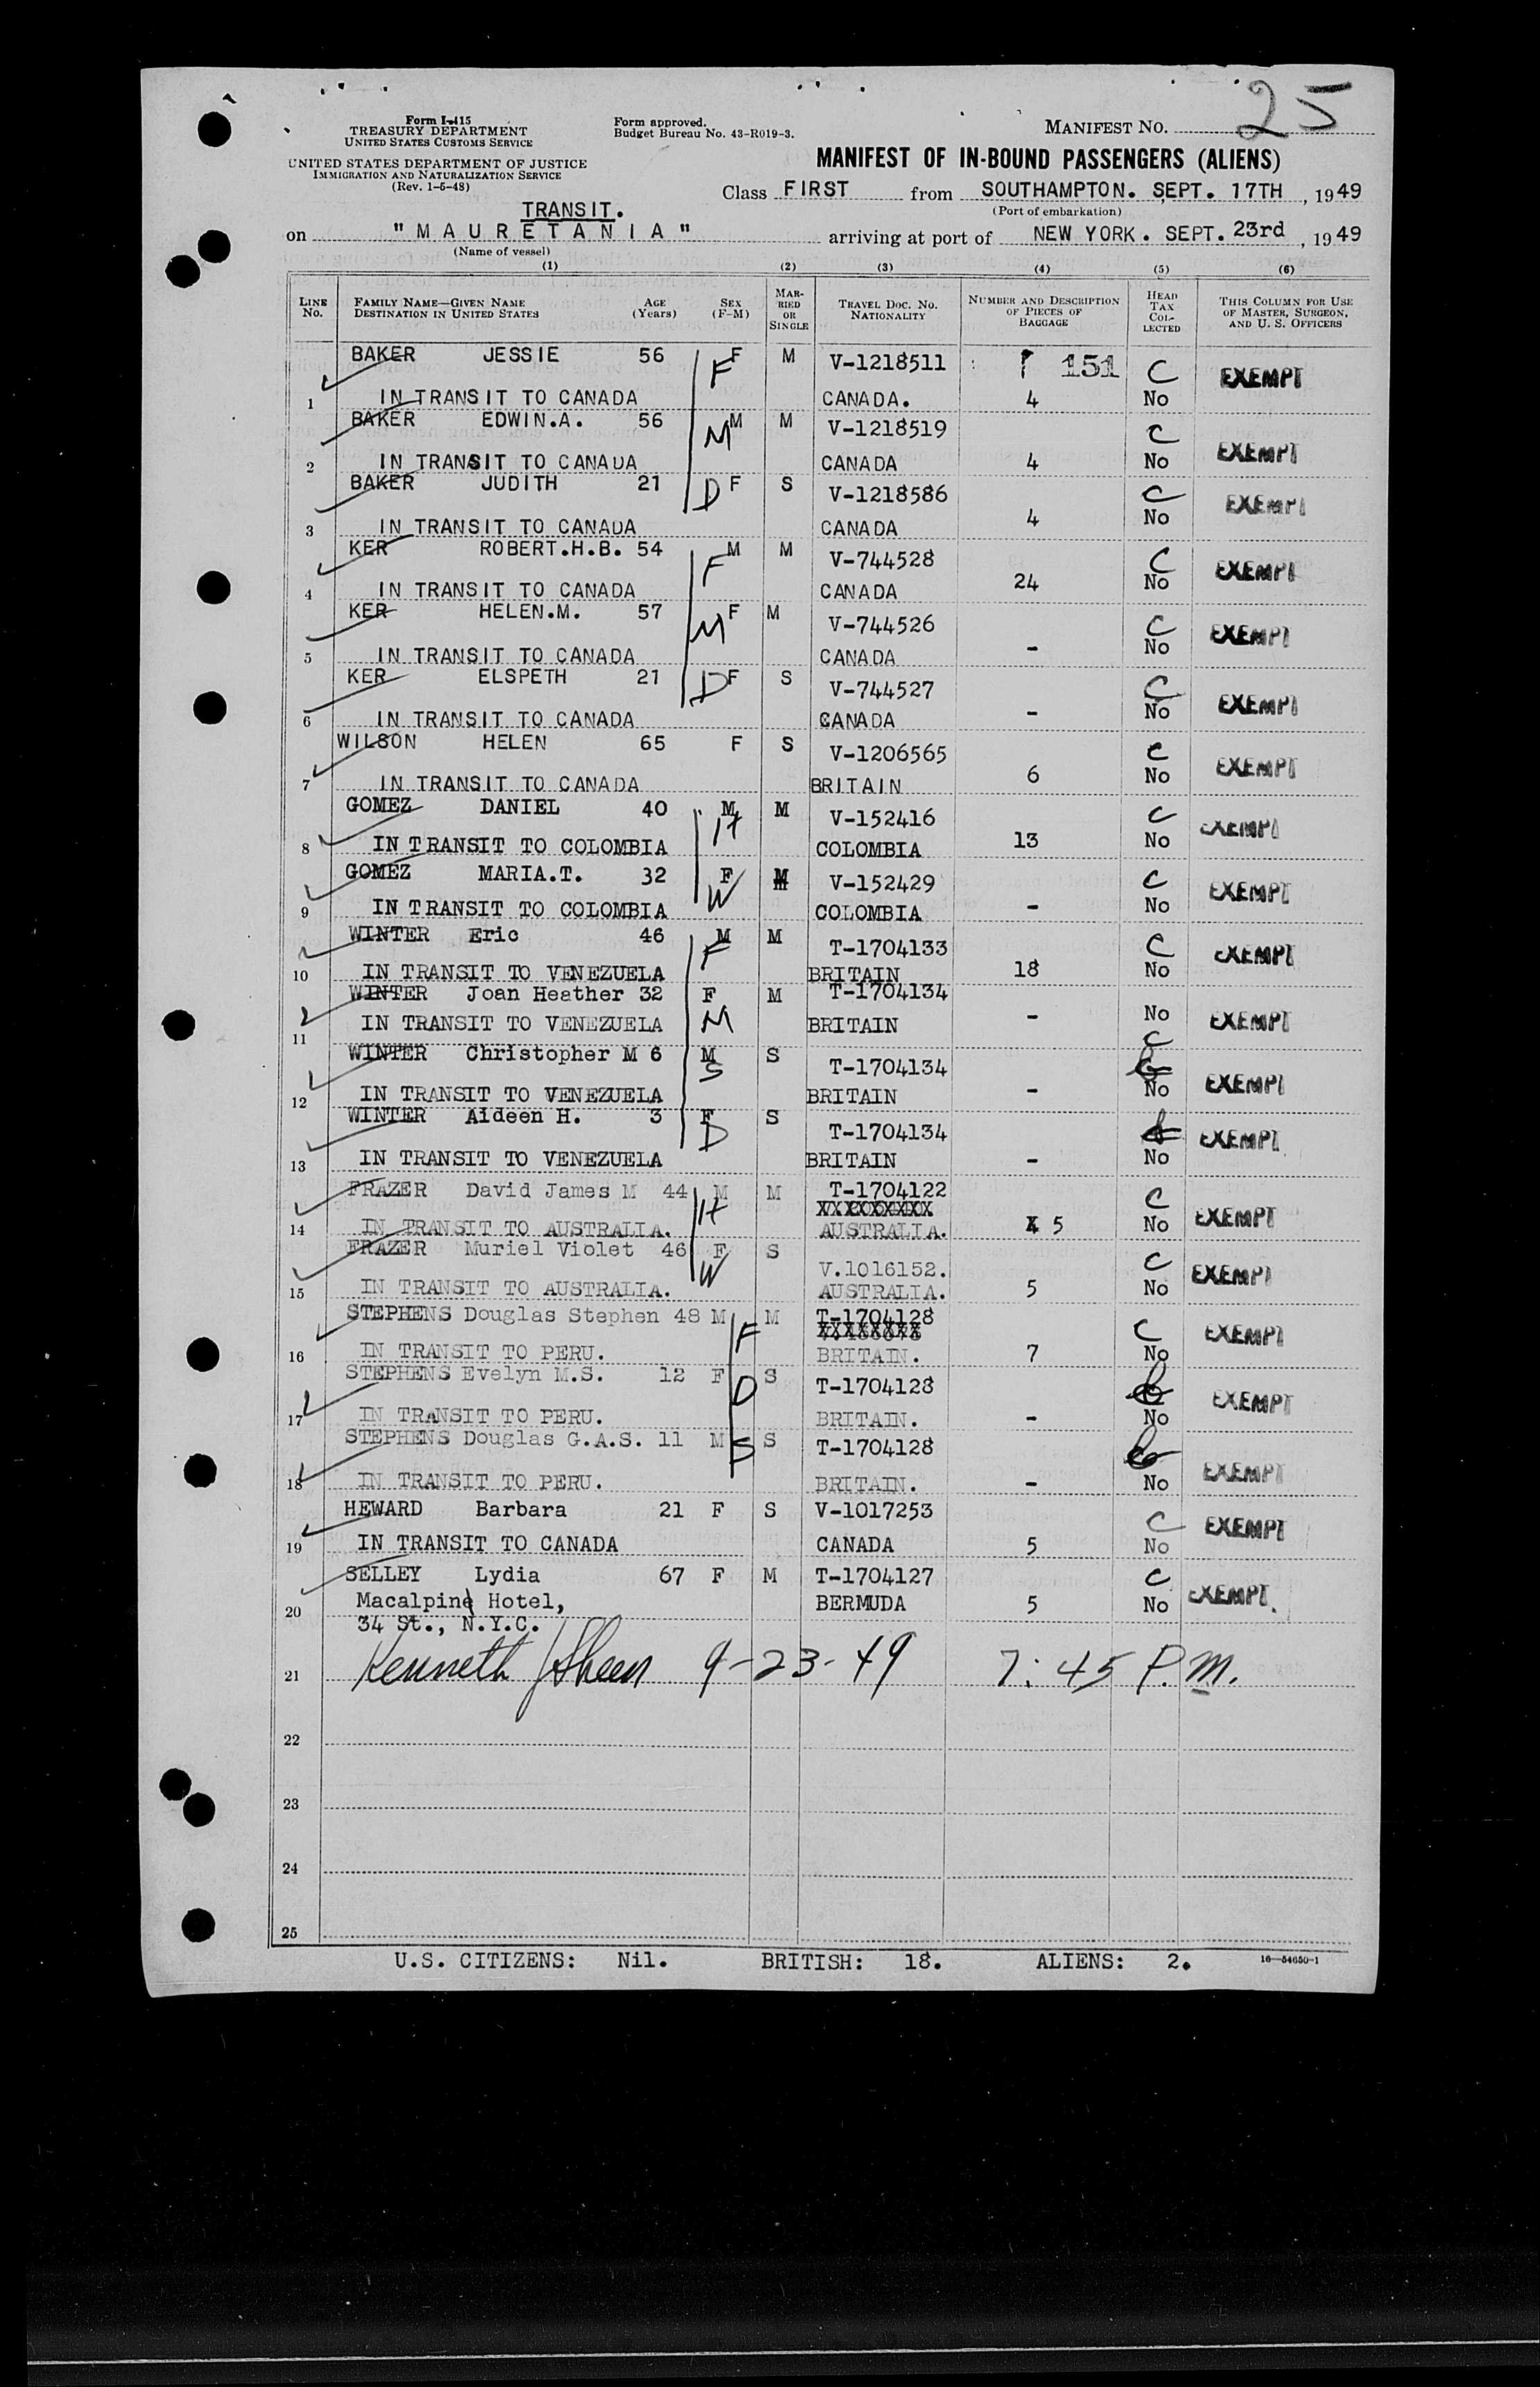 25
Form I-415
TREASURY DEPARTMENT
UNITED STATES CUSTOMS SERVICE
Form approved.
Budget Bureau No. 43-R019-3.
MANIFEST NO.
UNITED STATES DEPARTMENT OF JUSTICE
IMMIGRATION AND NATURALIZATION SERVICE
(Rev. 1-6-48)
MANIFEST OF IN-BOUND PASSENGERS (ALIENS)
Class FIRST from SOUTHAMPTON. SEPT. 17TH, 1949
(Port of embarkation)
TRANSIT.
on "MAURETANIA" arriving at port of NEW YORK. SEPT. 23rd, 1949
(Name of vessel)
(1) (2) (3) (4) (5) (6)
LINE No. FAMILY NAME—GIVEN NAME DESTINATION IN UNITED STATES AGE (Years) SEX (F-M) MARRIED OR SINGLE TRAVEL DOC. NO. NATIONALITY NUMBER AND DESCRIPTION OF PIECES OF BAGGAGE HEAD TAX COLLECTED THIS COLUMN FOR USE OF MASTER, SURGEON, AND U. S. OFFICERS
BAKER JESSIE 56 F F M V-1218511 151 C EXEMPT
1 IN TRANSIT TO CANADA CANADA. 4 No
BAKER EDWIN.A. 56 M M M V-1218519 C EXEMPT
2 IN TRANSIT TO CANADA CANADA 4 No
BAKER JUDITH 21 D F S V-1218586 C EXEMPT
3 IN TRANSIT TO CANADA CANADA 4 No
KER ROBERT.H.B. 54 F M M V-744528 C EXEMPT
4 IN TRANSIT TO CANADA CANADA 24 No
KER HELEN.M. 57 M F M V-744526 C EXEMPT
5 IN TRANSIT TO CANADA CANADA - No
KER ELSPETH 21 D F S V-744527 C EXEMPT
6 IN TRANSIT TO CANADA CANADA - No
WILSON HELEN 65 F S V-1206565 C EXEMPT
7 IN TRANSIT TO CANADA BRITAIN 6 No
GOMEZ DANIEL 40 M H M V-152416 C EXEMPT
8 IN TRANSIT TO COLOMBIA COLOMBIA 13 No
GOMEZ MARIA.T. 32 F W M V-152429 C EXEMPT
9 IN TRANSIT TO COLOMBIA COLOMBIA - No
WINTER Eric 46 M F M T-1704133 C EXEMPT
10 IN TRANSIT TO VENEZUELA BRITAIN 18 No
WINTER Joan Heather 32 F M M T-1704134 No EXEMPT
11 IN TRANSIT TO VENEZUELA BRITAIN - C
WINTER Christopher M 6 M S S T-1704134 EXEMPT
12 IN TRANSIT TO VENEZUELA BRITAIN - No
WINTER Aideen H. 3 F D S T-1704134 EXEMPT
13 IN TRANSIT TO VENEZUELA BRITAIN - No
FRAZER David James M 44 M H M T-1704122 C EXEMPT
XXXXXXXX
14 IN TRANSIT TO AUSTRALIA. AUSTRALIA. 5 No
FRAZER Muriel Violet 46 F W S V.1016152. C EXEMPT
15 IN TRANSIT TO AUSTRALIA. AUSTRALIA. 5 No
STEPHENS Douglas Stephen 48 M F M T-1704128 C EXEMPT
XXXXXXXX
16 IN TRANSIT TO PERU. BRITAIN. 7 No
STEPHENS Evelyn M.S. 12 F D S T-1704128 EXEMPT
17 IN TRANSIT TO PERU. BRITAIN. - No
STEPHENS Douglas G.A.S. 11 M S S T-1704128 EXEMPT
18 IN TRANSIT TO PERU. BRITAIN. - No
HEWARD Barbara 21 F S V-1017253 C EXEMPT
19 IN TRANSIT TO CANADA CANADA 5 No
SELLEY Lydia 67 F M T-1704127 C EXEMPT.
20 Macalpine Hotel, BERMUDA 5 No
34 St., N.Y.C.
21 Kenneth J Sheen 9-23-49 7:45 P.M.
22
23
24
25
U.S. CITIZENS: Nil. BRITISH: 18. ALIENS: 2. 16—54650-1